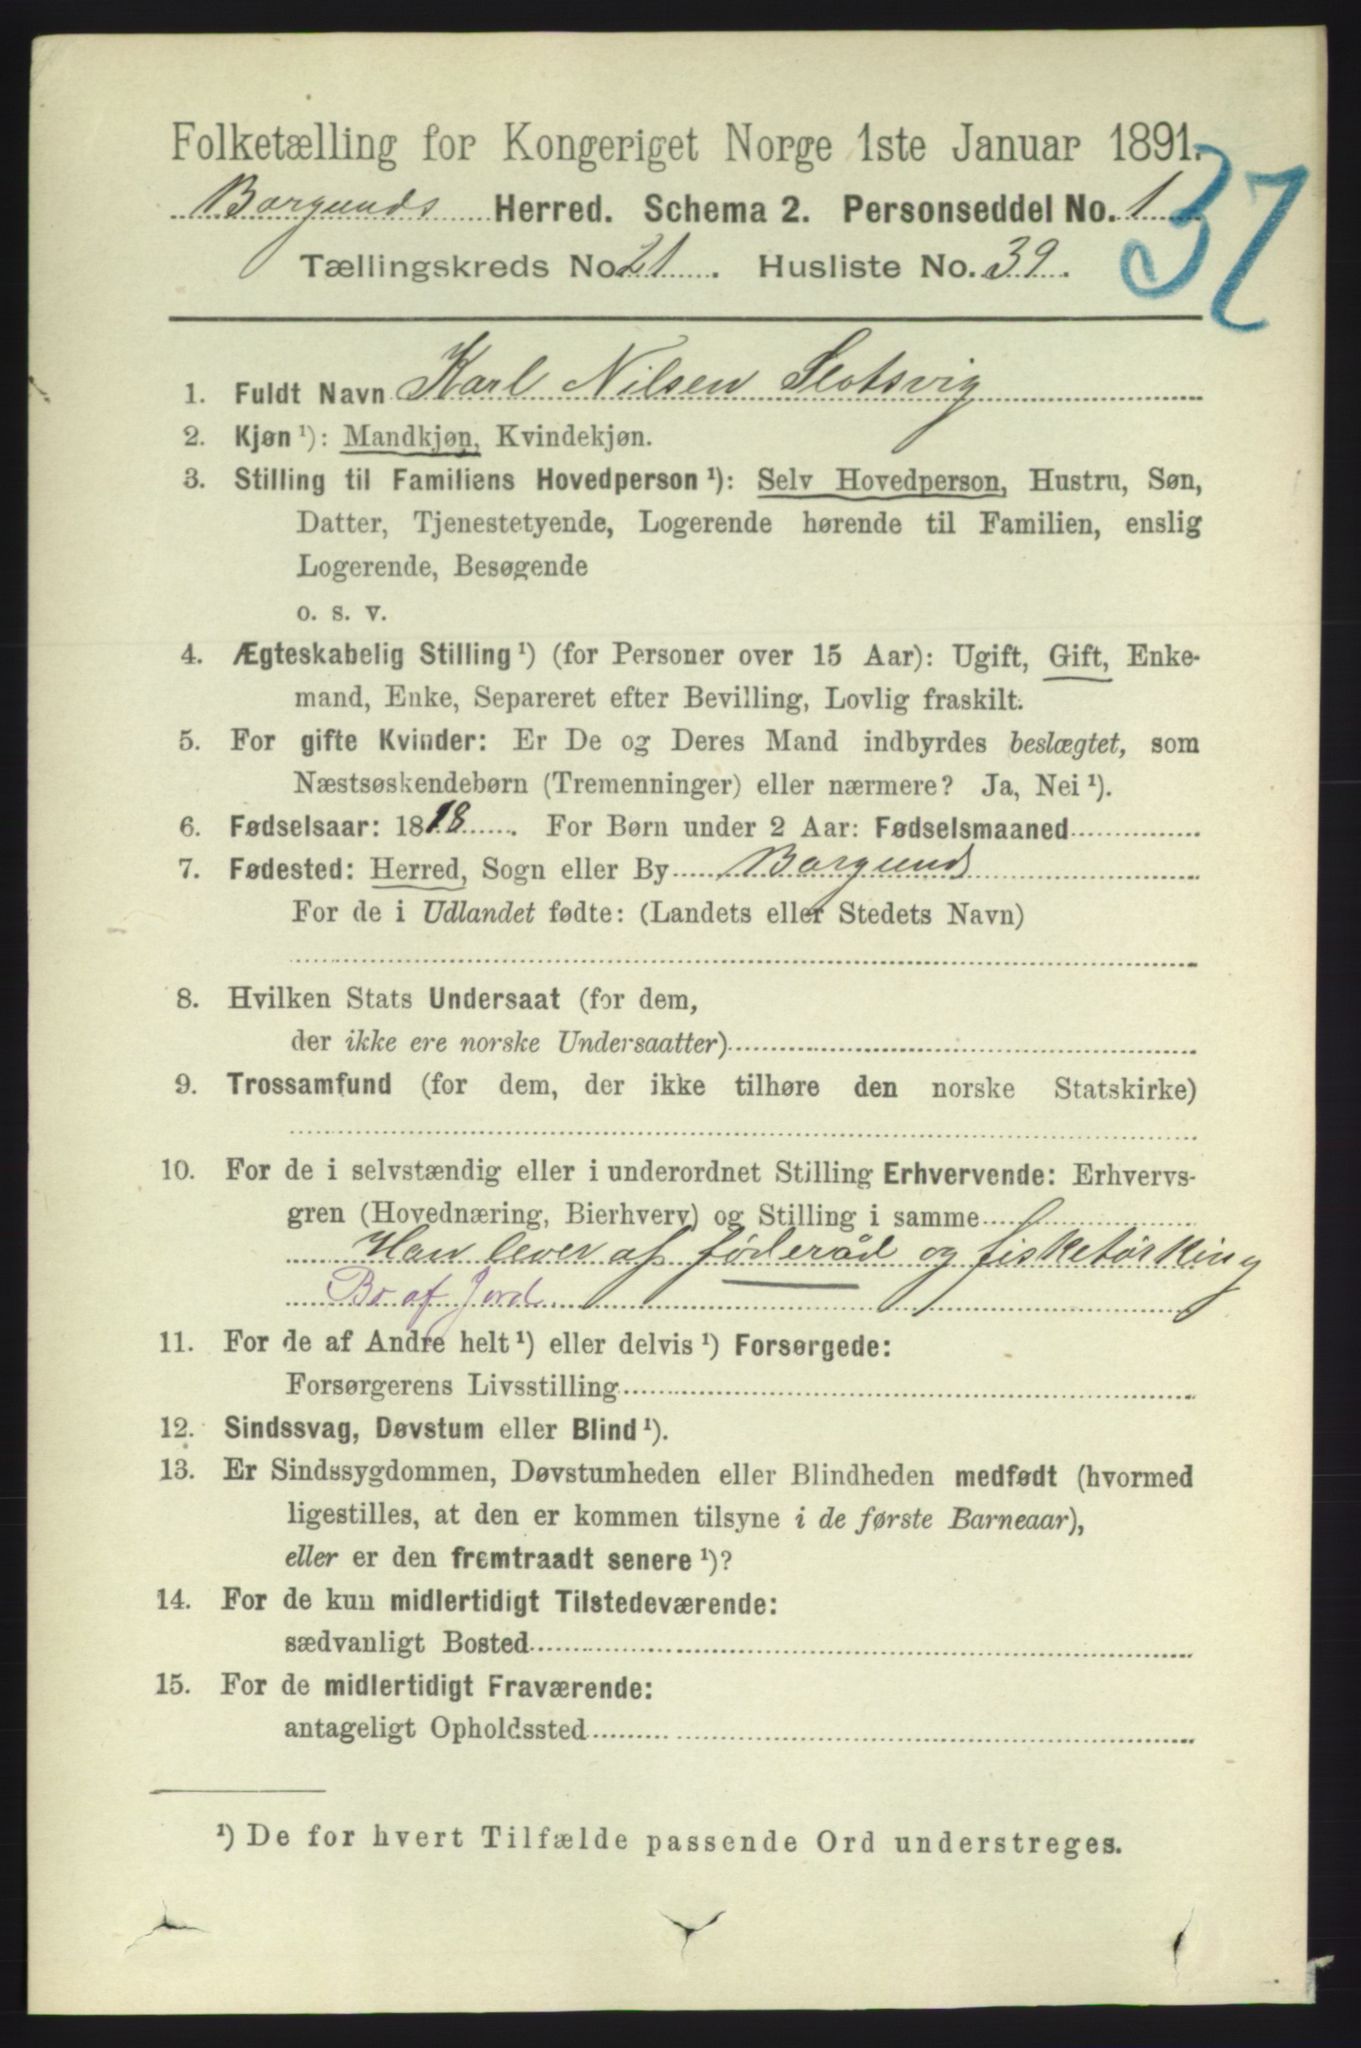 Folketælling for Kongeriget Norge 1ste Januar 1891.
37
Borgunds Herred. Schema 2. Personseddel No. 1
Tællingskreds No. 21. Husliste No. 39.
1. Fuldt Navn Karl Nilsen Slotsvig
2. Kjøn ¹): Mandkjøn, Kvindekjøn.
3. Stilling til Familiens Hovedperson ¹): Selv Hovedperson, Hustru, Søn,
Datter, Tjenestetyende, Logerende hørende til Familien, enslig
Logerende, Besøgende
o. s. v.
4. Ægteskabelig Stilling ¹) (for Personer over 15 Aar): Ugift, Gift, Enke-
mand, Enke, Separeret efter Bevilling, Lovlig fraskilt.
5. For gifte Kvinder: Er De og Deres Mand indbyrdes beslægtet, som
Næstsøskendebørn (Tremenninger) eller nærmere? Ja, Nei ¹).
6. Fødselsaar: 1818. For Børn under 2 Aar: Fødselsmaaned
7. Fødested: Herred, Sogn eller By Borgund
For de i Udlandet fødte: (Landets eller Stedets Navn)
8. Hvilken Stats Undersaat (for dem,
der ikke ere norske Undersaatter)
9. Trossamfund (for dem, der ikke tilhøre den norske Statskirke)
10. For de i selvstændig eller i underordnet Stilling Erhvervende: Erhvervs-
gren (Hovednæring, Bierhverv) og Stilling i samme
Han lever af føderåd og fisketørking
Br af Jord
11. For de af Andre helt ¹) eller delvis ¹) Forsørgede:
Forsørgerens Livsstilling
12. Sindssvag, Døvstum eller Blind ¹).
13. Er Sindssygdommen, Døvstumheden eller Blindheden medfødt (hvormed
ligestilles, at den er kommen tilsyne i de første Barneaar),
eller er den fremtraadt senere ¹)?
14. For de kun midlertidigt Tilstedeværende:
sædvanligt Bosted
15. For de midlertidigt Fraværende:
antageligt Opholdssted
¹) De for hvert Tilfælde passende Ord understreges.